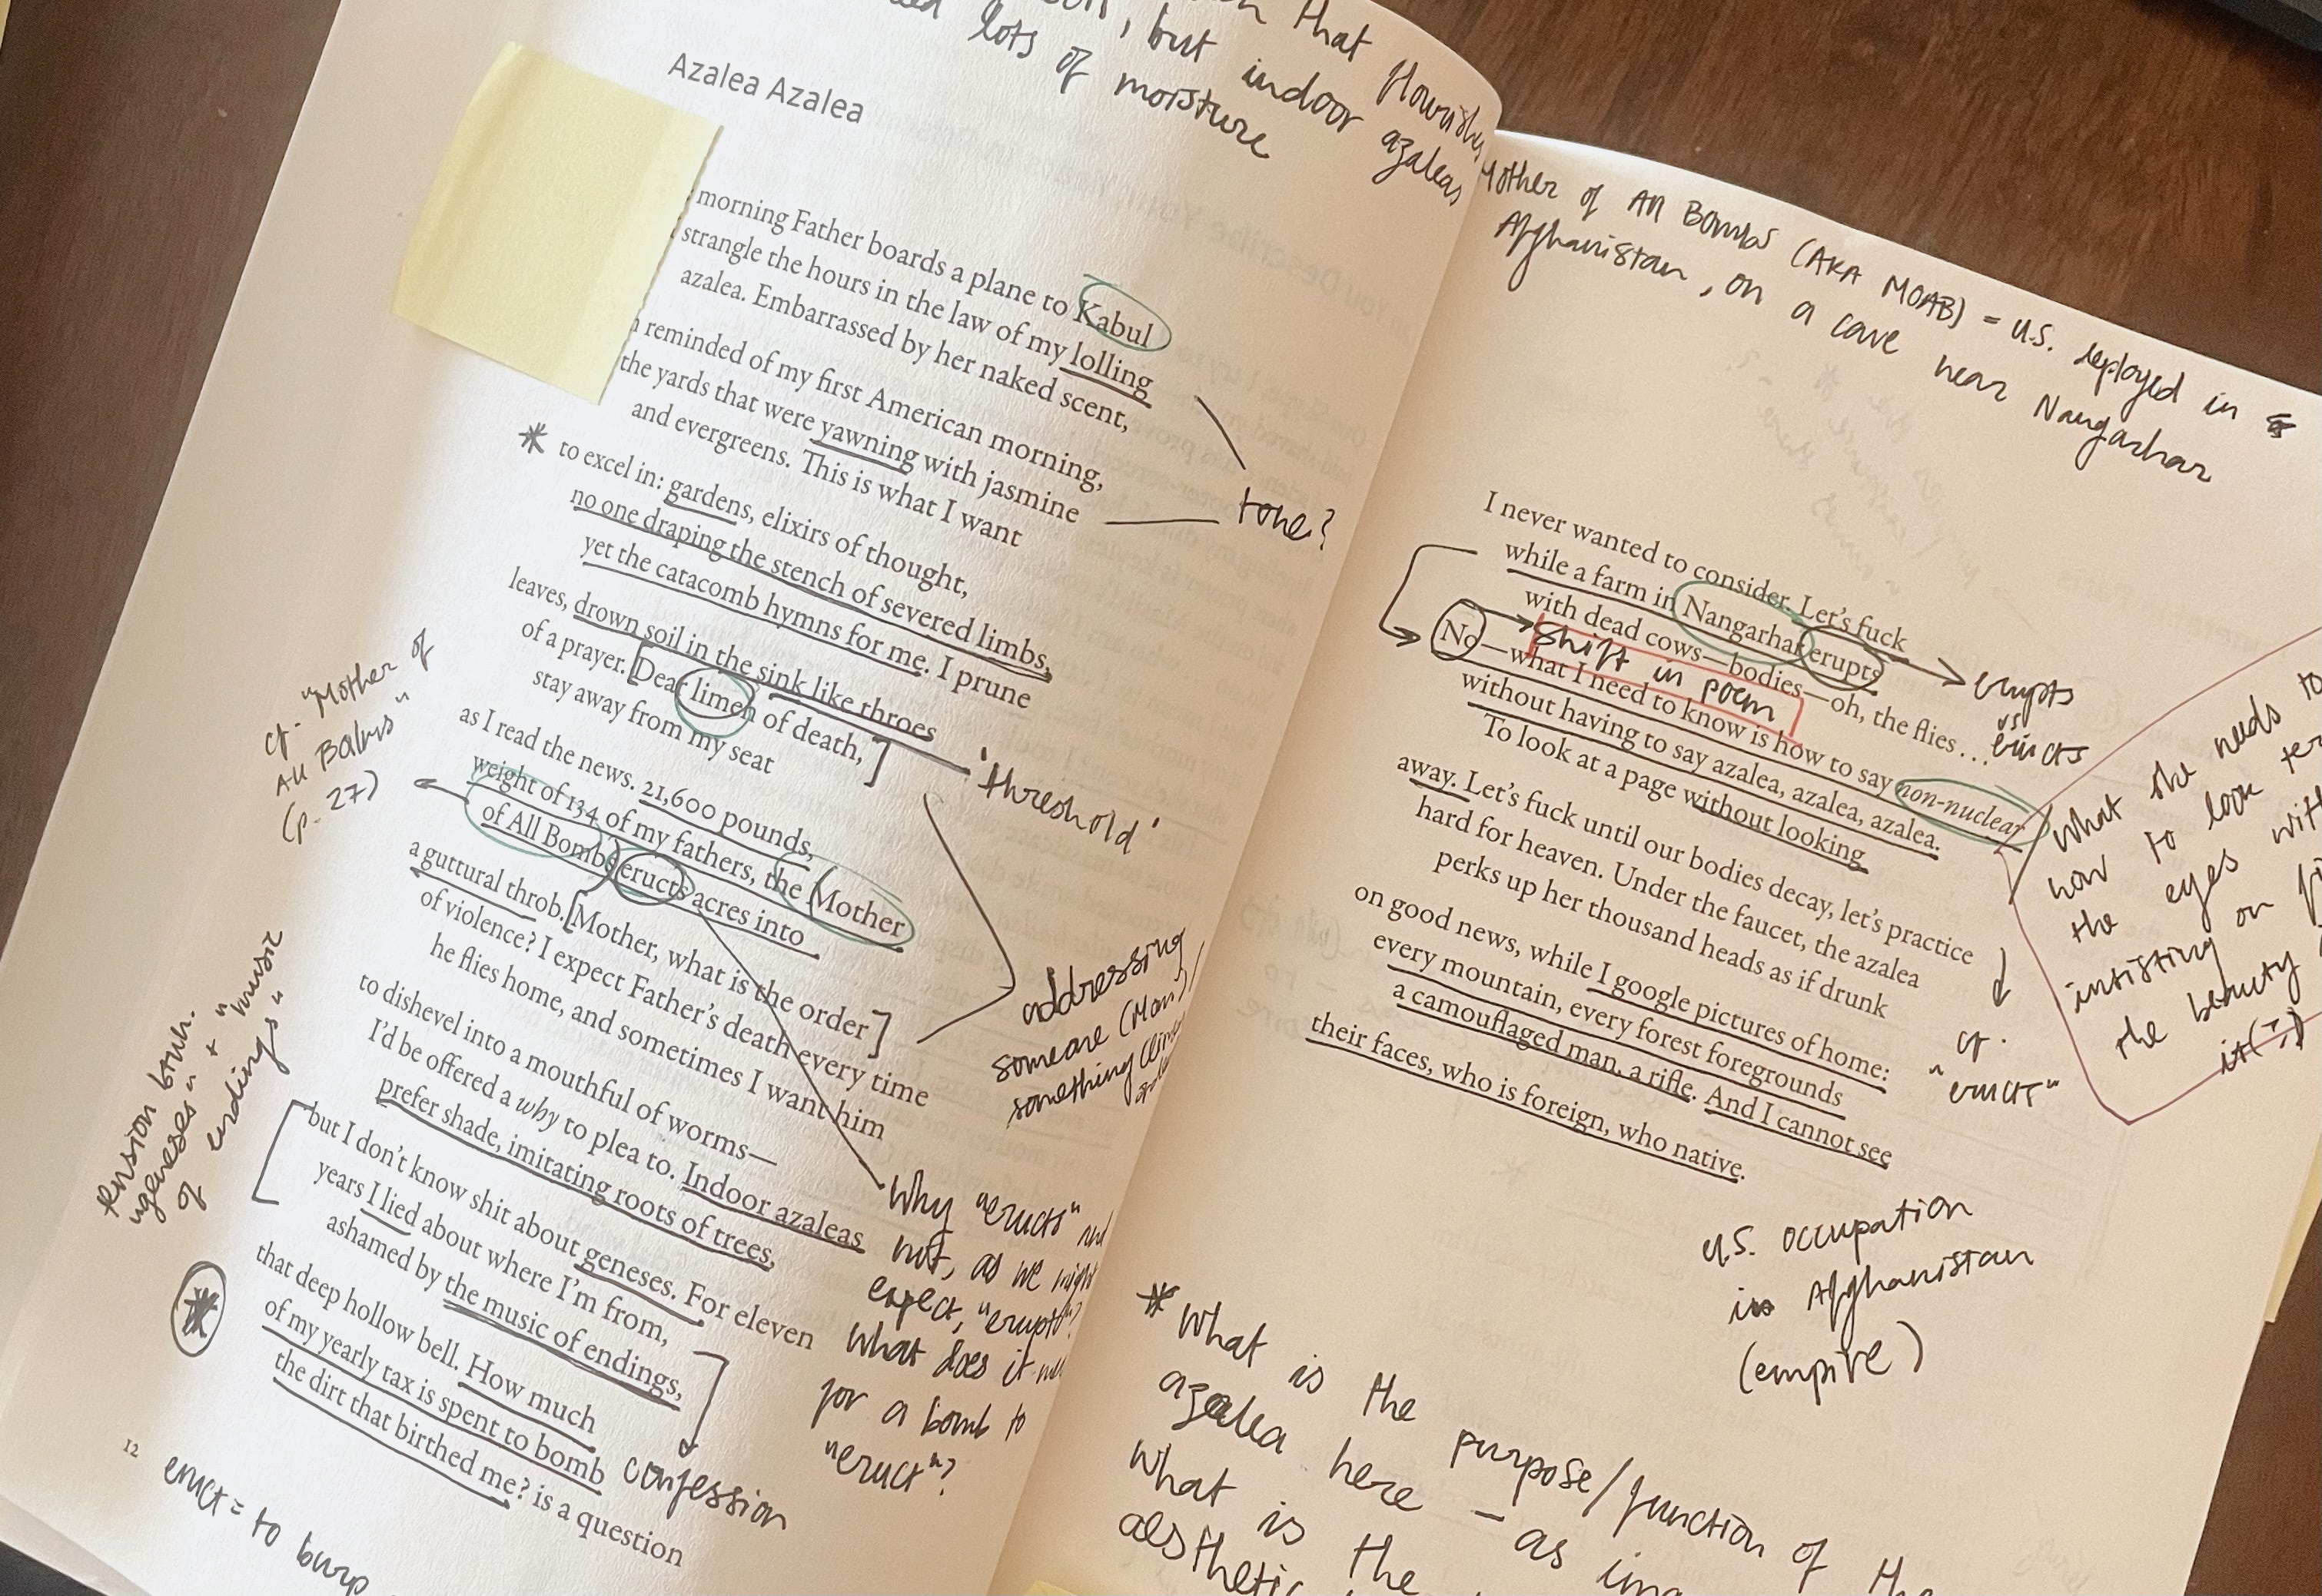 that flourishes
, but indoor azaleas
lots of moisture
Azalea Azalea
morning Father boards a plane to Kabul
strangle the hours in the law of my lolling
azalea. Embarrassed by her naked scent,
reminded of my first American morning,
the yards that were yawning with jasmine
and evergreens. This is what I want
tone?
* to excel in: gardens, elixirs of thought,
no one draping the stench of severed limbs,
yet the catacomb hymns for me. I prune
leaves, drown soil in the sink like throes
of a prayer. [Dear limen of death,]
stay away from my seat
'threshold'
as I read the news. 21,600 pounds,
weight of 134 of my fathers, the Mother
of All Bombs eructs acres into
cf. "Mother of
All Balms"
(p. 27)
a guttural throb. [Mother, what is the order
of violence?] I expect Father's death every time
he flies home, and sometimes I want him
addressing
someone (Mom) /
something
to dishevel into a mouthful of worms—
I'd be offered a why to plea to. Indoor azaleas
prefer shade, imitating roots of trees,
tension btwn.
"geneses" + "music
of endings"
[but I don't know shit about geneses. For eleven
years I lied about where I'm from,
ashamed by the music of endings,]
that deep hollow bell. How much
of my yearly tax is spent to bomb
the dirt that birthed me? is a question
*
confession
Why "eructs" and
not, as we might
expect, "erupts"?
What does it
for a bomb to
"eruct"?
12
eruct = to burp
Mother of All Bombs (AKA MOAB) = U.S. deployed in
Afghanistan, on a cave near Nangarhar
I never wanted to consider. Let's fuck
while a farm in Nangarhar erupts
with dead cows—bodies—oh, the flies…
erupts
vs.
eructs
shift in poem
No—what I need to know is how to say non-nuclear
without having to say azalea, azalea, azalea.
To look at a page without looking
away. Let's fuck until our bodies decay, let's practice
hard for heaven. Under the faucet, the azalea
perks up her thousand heads as if drunk
cf.
"eructs"
on good news, while I google pictures of home:
every mountain, every forest foregrounds
a camouflaged man, a rifle. And I cannot see
their faces, who is foreign, who native.
What she needs to
how to look
the eyes
insisting on
the beauty
it(?)
U.S. occupation
in Afghanistan
(empire)
* What is the purpose/function of the
azalea here – as
What is the
aesthetic